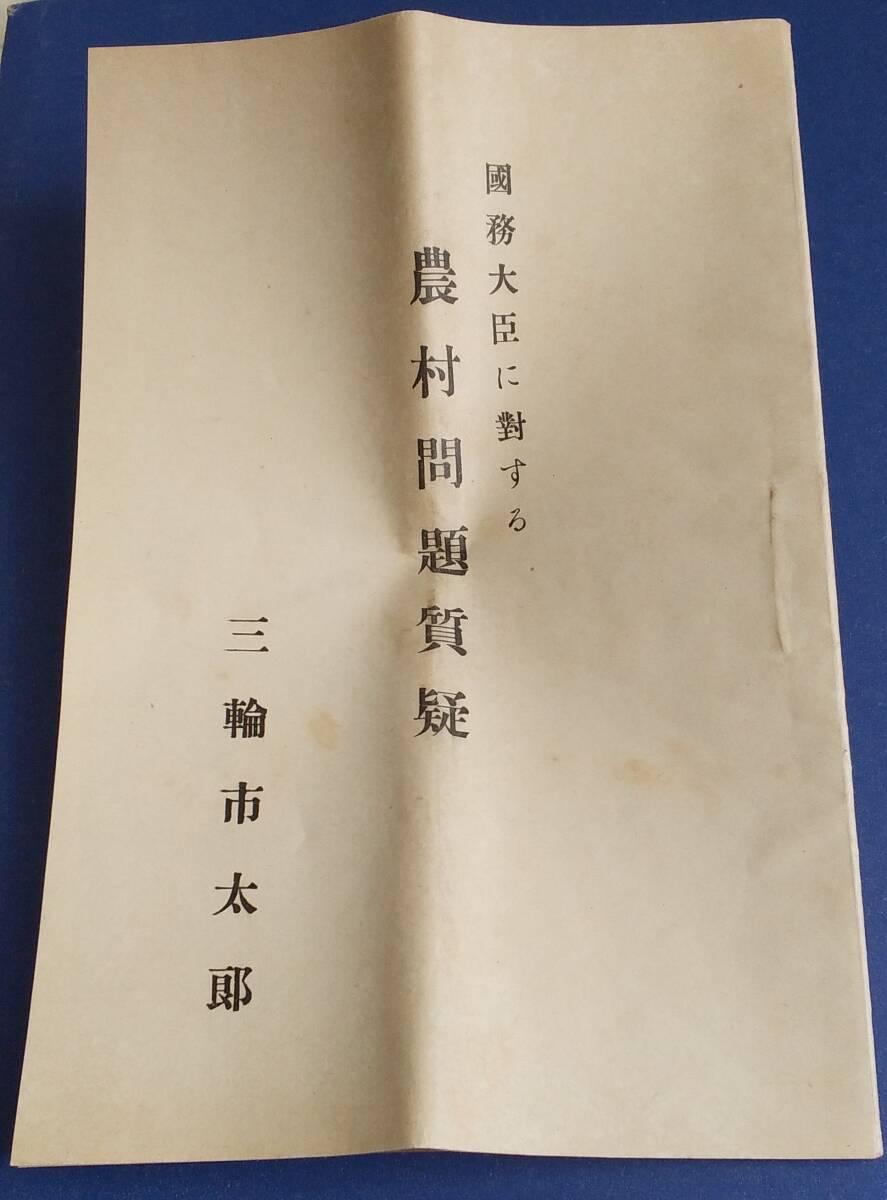 國務大臣に對する
農村問題質疑
三輪市太郎